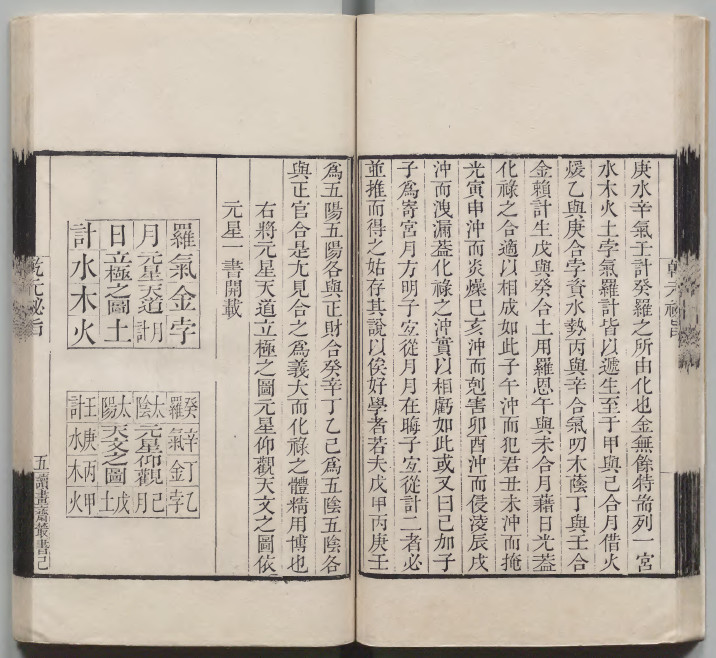 庚水辛氣壬計癸羅之所由化也金無餘特耑列一宮
水木火土孛氣羅計皆以遞生至于甲與己合月借火
煖乙與庚合孛資水勢丙與辛合氣叨木蔭丁與壬合
金賴計生戊與癸合土用羅恩午與未合月藉日光葢
化祿之合適以相成如此子午沖而犯君丑未沖而掩
光寅申沖而炎燥巳亥沖而剋害卯酉沖而侵淩辰戌
沖而洩漏葢化祿之沖實以相虧如此或又曰己加子
子為寄宮月方明子宐從月月在晦子宐從計二者必
並推而得之姑存其說以俟好學者若夫戊甲丙庚壬
為五陽五陽各與正財合癸辛丁乙己為五陰五陰各
與正官合是尢見合之為義大而化祿之體精用博也
右將元星天道立極之圖元星仰觀天文之圖依
元星一書開載
羅氣金孛
月元星天道月
日立極之圖土
計水木火
計
癸辛丁乙
羅氣金孛
太陰元星仰觀己月
太陽天文之圖戊土
壬庚丙甲
計水木火
乾元秘旨
五讀畫齋叢書己